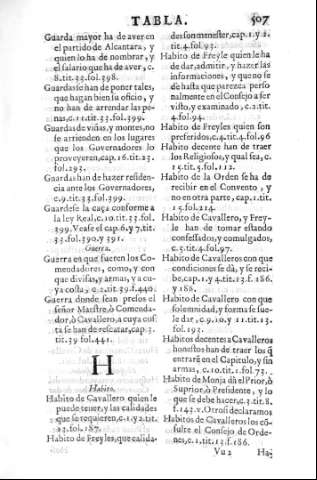 TABLA. 507
Guarda mayor ha de aver en
el partido de Alcantara, y
quien lo ha de nombrar, y
el salario que ha de aver, c.
8.tit.33.fol.398.
Guardas se han de poner tales,
que hagan bien su oficio, y
no han de arrendar las pe-
nas, c.11.tit.33.fol.399.
Guardas de viñas, y montes, no
se arrienden en los lugares
que los Governadores lo
proveyeran, cap.16.tit.23.
fol.293.
Guardas han de hazer residen-
cia ante los Governadores,
c.9.tit.33.fol.399.
Guardese la caça conforme a
la ley Real, c.10.tit.33.fol.
399. Vease el cap.6.y 7.tit.
33.fol.390.y 391.
Guerra.
Guerra en que fueren los Co-
mendadores, como, y con
que divisas, y armas, y a cu-
ya costa, c.2.tit.39.f.440.
Guerra donde sean presos el
señor Maestre, ò Comenda-
dor, ò Cavallero, a cuya cos
ta se han de rescatar, cap.3.
tit.39 fol.441.
H
Habito.
Habito de Cavallero quien le
puede tener, y las calidades
que se requieren, c.1.y 2.tit.
13.fol.187.
Habito de Freyles, que calida-
des son menester, cap.1.y 2.
tit.4.fol.93.
Habito de Freyle quien le ha
de dar, admitir, y hazer las
informaciones, y que no se
dè hasta que parezca perso
nalmente en el Consejo a ser
visto, y examinado, c.2.tit.
4.fol.94.
Habito de Freyles quien son
preferidos, c.4.tit.4.fol.96
Habito decente han de traer
los Religiosos, y qual sea, c.
15.tit.5.fol.112.
Habito de la Orden se ha de
recibir en el Convento, y
no en otra parte, cap.1.tit.
15.fol.214.
Habito de Cavallero, y Frey-
le han de tomar estando
confessados, y comulgados,
c.5.tit.4.fol.97.
Habito de Cavalleros con que
condiciones se dà, y se reci-
be, cap.1.y 4.tit.13.f.186.
y 186.
Habito de Cavallero con que
solemnidad, y forma se sue-
le dar, c.9.10.y 11.tit.13.
fol.193.
Habitos decentes a Cavalleros
honestos han de traer los q̃
entrarẽ en el Capitulo, y sin
armas, c.10.tit.1.fol.73.
Habito de Monja dà el Prior, ò
Suprior, ò Presidente, y lo
que se debe hacer, c.3.tit.8.
f.143.v. Otrosi declaramos
Habito de Cavalleros los cõ-
sulte el Consejo de Orde-
nes, c.1.tit.13.f.186.
Vu 2 Ha-